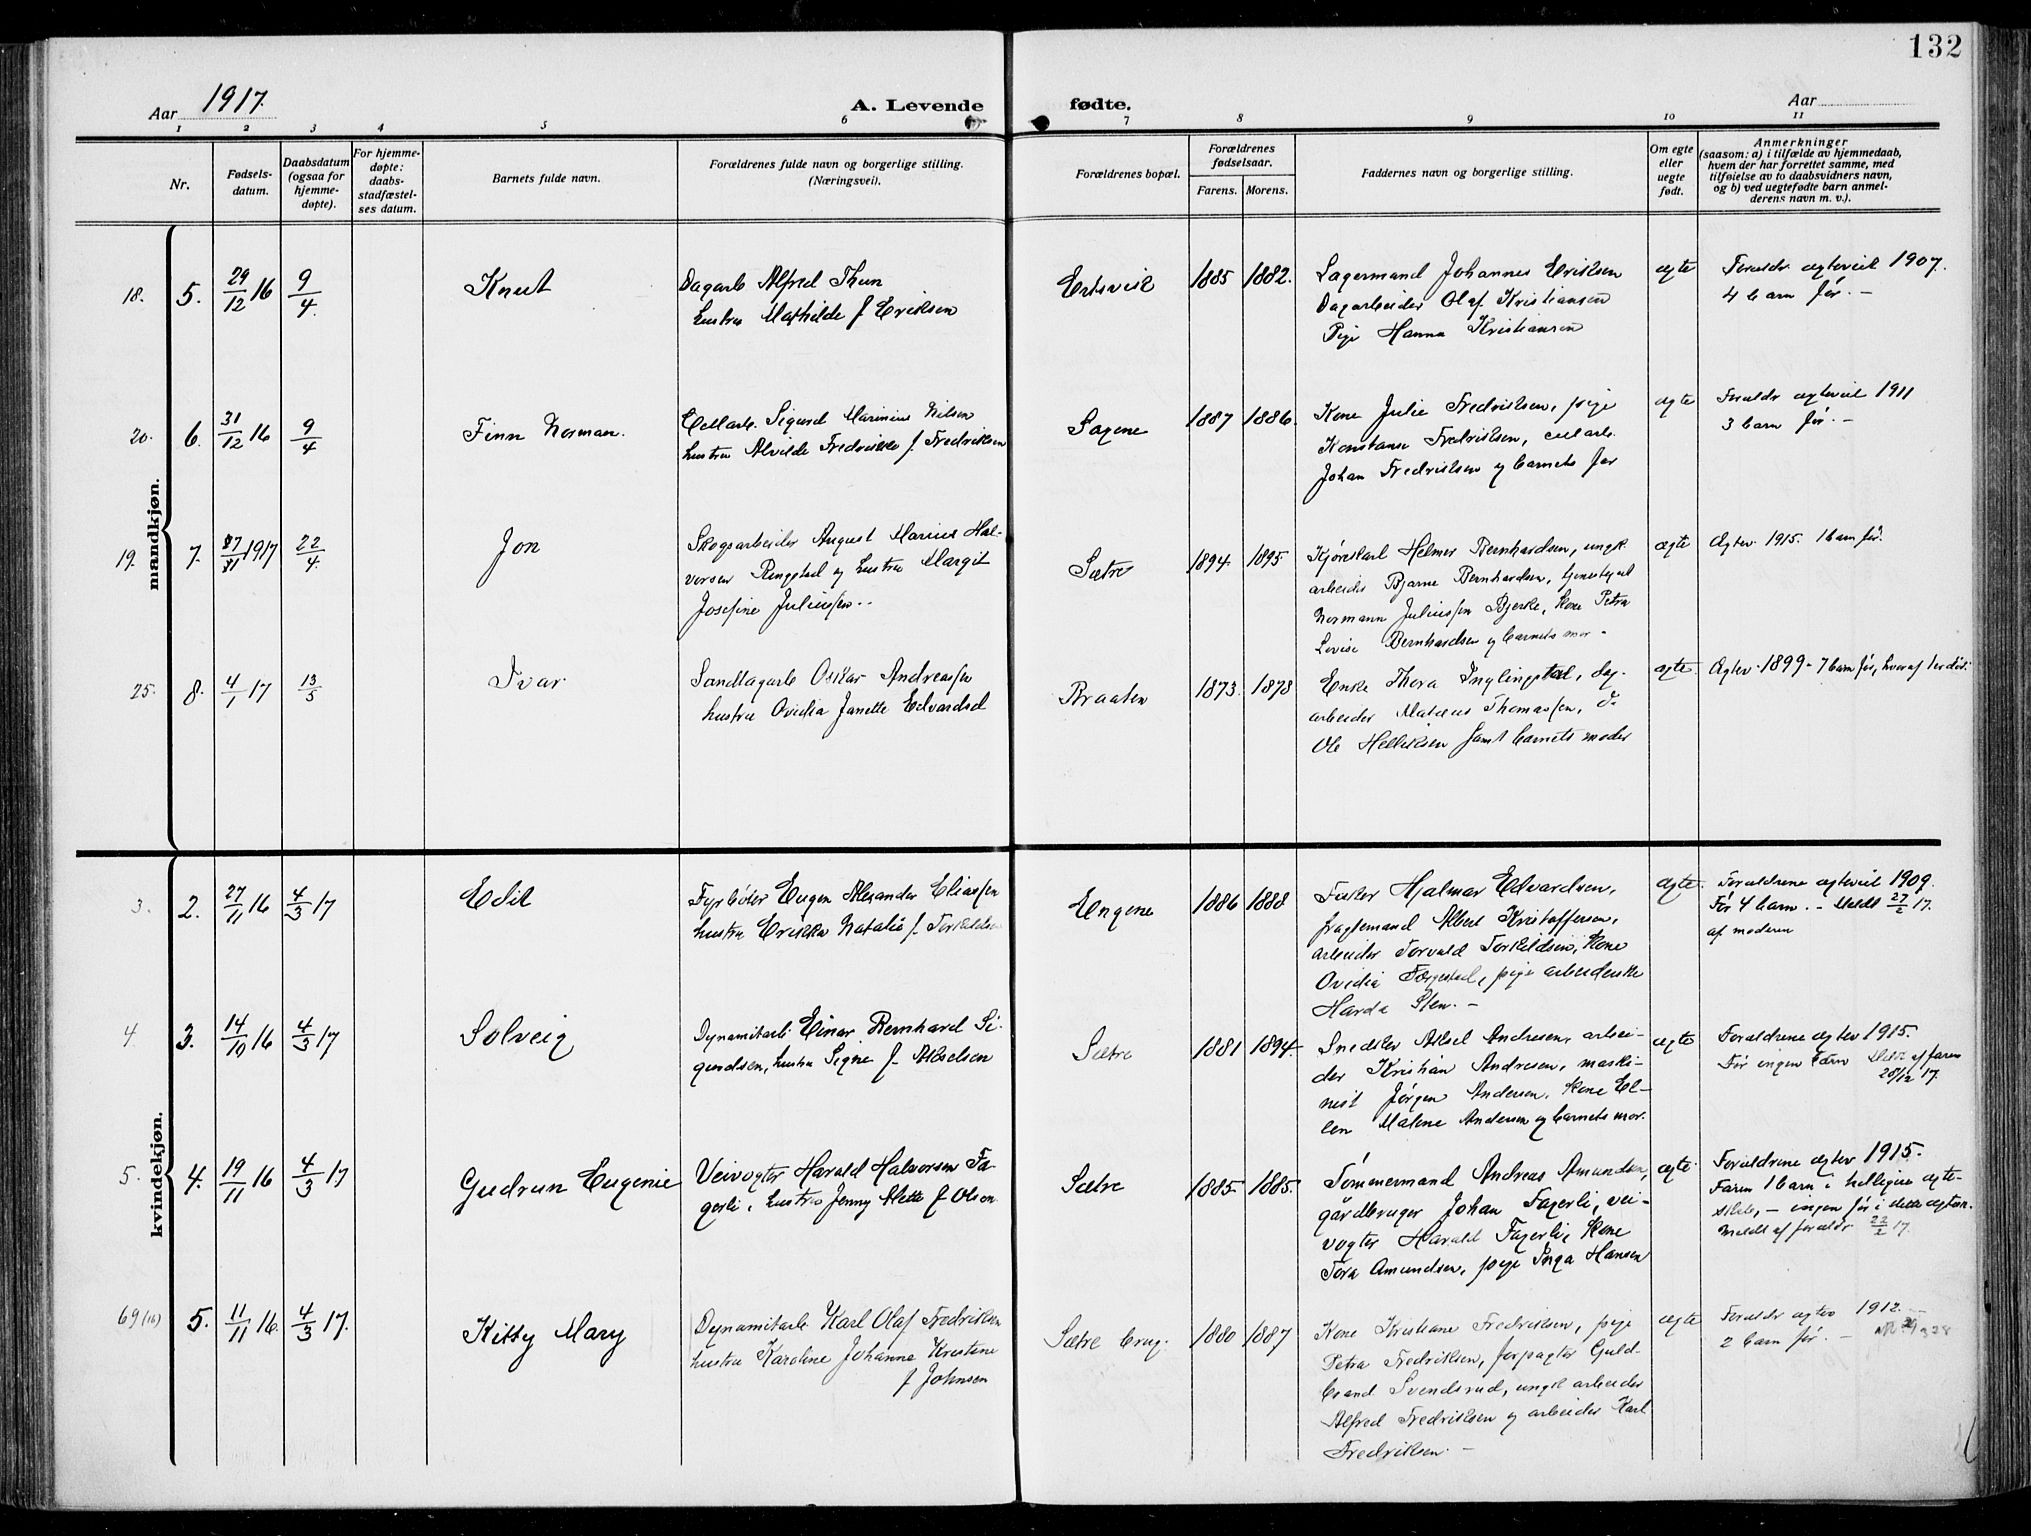 132
Aar 1917. A. Levende fødte. Aar
1 2 3 4 5 6 7 8 9 10 11
Nr.
Fødsels-
datum.
Daabsdatum
(ogsaa for
hjemme-
døpte).
For hjemme-
døpte:
daabs-
stadfæstel-
ses datum.
Barnets fulde navn.
Forældrenes fulde navn og borgerlige stilling.
(Næringsvei).
Forældrenes bopæl.
Forældrenes
fødselsaar.
Farens. Morens.
Faddernes navn og borgerlige stilling.
Om egte
eller
uegte
født.
Anmerkninger
(saasom: a) i tilfælde av hjemmedaab,
hvem der har forrettet samme, med
tilføielse av to daabsvidners navn,
og b) ved uegtefødte barn anmel-
derens navn m. v.).
mandkjøn.
18. 5. 29/12 16 9/4. Knut
Dagarb Alfred Thun
hustru Mathilde f Eriksen
Ertsvik 1885 1882.
Lagermand Johannes Eriksen
Dagarbeider Olaf Kristiansen
Pige Hanna Kristiansen
ægte
Foreldr ægteviet 1907.
4 barn før. —
20. 6. 31/12 16 9/4 Finn Norman.
Cellarb. Sigurd Marinius Nilsen
hustru Alvilde Fredrikke f. Fredriksen
Sagene 1887 1886.
Kone Julie Fredriksen, pige
Konstanse Fredriksen, cellarb.
Johan Fredriksen og barnets far
ægte
Foreldr ægteviet 1911
3 barn før. —
19. 7. 1917 22/4. Jon
Skogsarbeider August Marius Hal-
vorsen Ringstad og hustru Margit
Josefine Juliussen..
Sætre 1894 1895
Kjørekarl Helmer Bernhardsen, ungk.
arbeider Bjarne Bernhardsen, tjenestepal
Normann Juliussen Bjerke, kone Petra
Lovise Bernhardsen og barnets mor -
ægte
Ægtev. 1915. 1 barn før.
25. 8. 4/1 17 13/5 Ivar
Sandtagarb Oskar Andreassen
hustru Ovidia Janette Edvardsd
Braaten 1873. 1878
Enke Thora Inglingstad, dag-
arbeider Matæus Thomassen, do
Ole Helliksen samt barnets moder
ægte.
Ægtev. 1899 - 7 barn før, hvoraf 1 er død.
kvindekjøn.
3. 2. 27/11 16 4/3 17 Edit
Fyrbøter Eugen Alexander Eliassen
hustru Erikka Natalie f. Torkildsen
Engene 1886 1888
Fisker Hjalmar Edvardsen,
fragtemand Albert Kristoffersen,
arbeider Torvald Torkildsen, kone
Ovidia Færgestad, pige arbeiderske
Harda Sten. —
ægte.
Foreldrene ægteviet 1909.
Før 4 barn. — Meldt 27/2 17.
af moderen
4 3. 14/10 16 4/3 17 Solveig
Dynamitarb. Einar Bernhard Si-
gurdsen, hustru Signe f. Akselsen
Sætre 1881 1894.
Snedker Aksel Andresen, arbei-
der Kristian Andresen, maski-
nist Jørgen Andersen, kone El-
len Malene Andersen og barnets mor.
ægte
Foreldrene ægtev 1915.
Før ingen barn Meldt af faren
28/12 17.
5. 4. 19/11 16 4/3 17 Gudrun Eugenie
Veivogter Harald Halvorsen Fa-
gerli, hustru Jenny Alette f Olsen
Sætre 1885. 1885.
Tømmermand Andreas Amundsen,
gårdbruger Johan Fagerli, vei-
vogter Harald Fagerli, kone
Tora Amundsen, pige Inga Hansen
ægte
Foreldrene ægtev 1915.
Faren 1 barn i tidligere ægte-
skab, — ingen før i dette ægtesk.
Meldt af foreldr 22/2 17.
69 (16) 5. 11/11 16. 4/3 17. Kitty Mary
Dynamitarb Karl Olaf Fredriksen
hustru Karoline Johanne Kristine
f Johnsen
Sætre brug. 1880 1887
Kone Kristiane Fredriksen, pige
Petra Fredriksen, forpagter Guld-
brand Svendsrud, ungk arbeider
Alfred Fredriksen og arbeider Karl
Fredriksen. —
ægte
Foreldr ægtev 1912. —
2 barn før. —